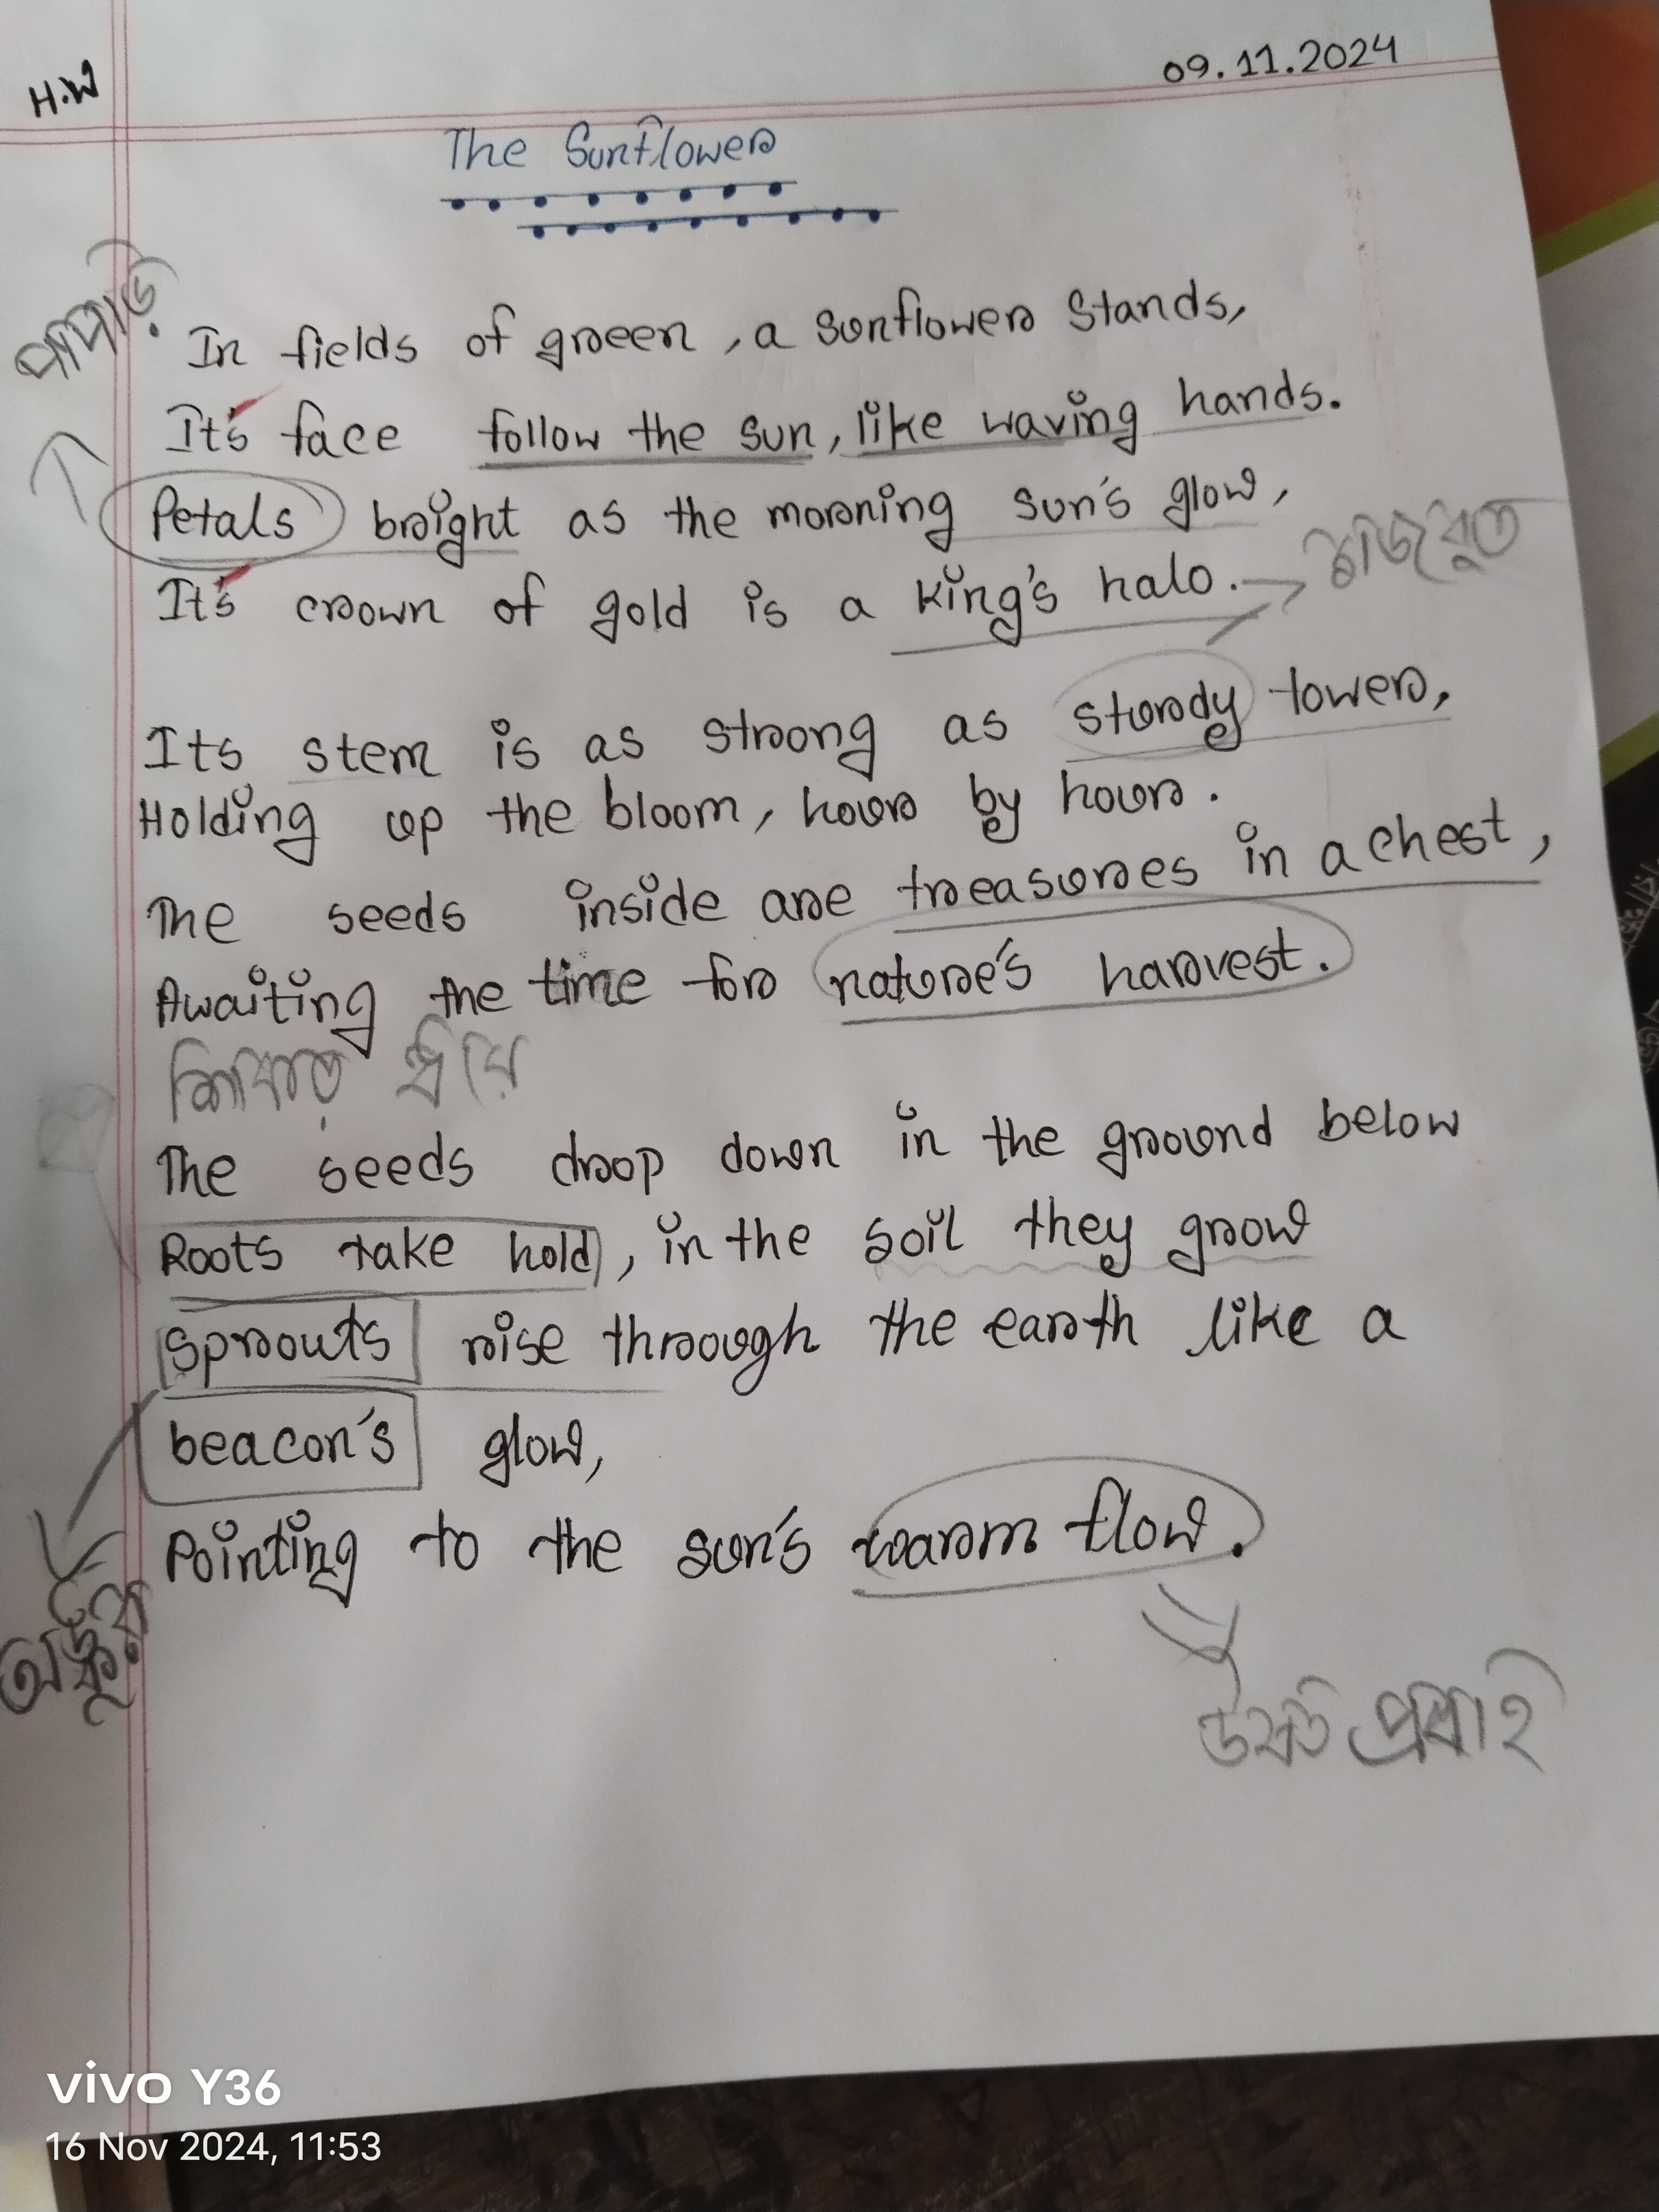 H.W
09.11.2024
The Sunflower
পাপড়ি
In fields of green, a sunflower stands,
It's face follow the sun, like waving hands.
Petals bright as the morning sun's glow,
It's crown of gold is a king's halo.
মজবুত
Its stem is as strong as sturdy tower,
Holding up the bloom, hour by hour.
The seeds inside are treasures in a chest,
Awaiting the time for nature's harvest.
The seeds drop down in the ground below
Roots take hold, in the soil they grow
Sprouts rise through the earth like a
beacon's glow,
Pointing to the sun's warm flow.
অঙ্কুর
প্রবাহ
vivo Y36
16 Nov 2024, 11:53